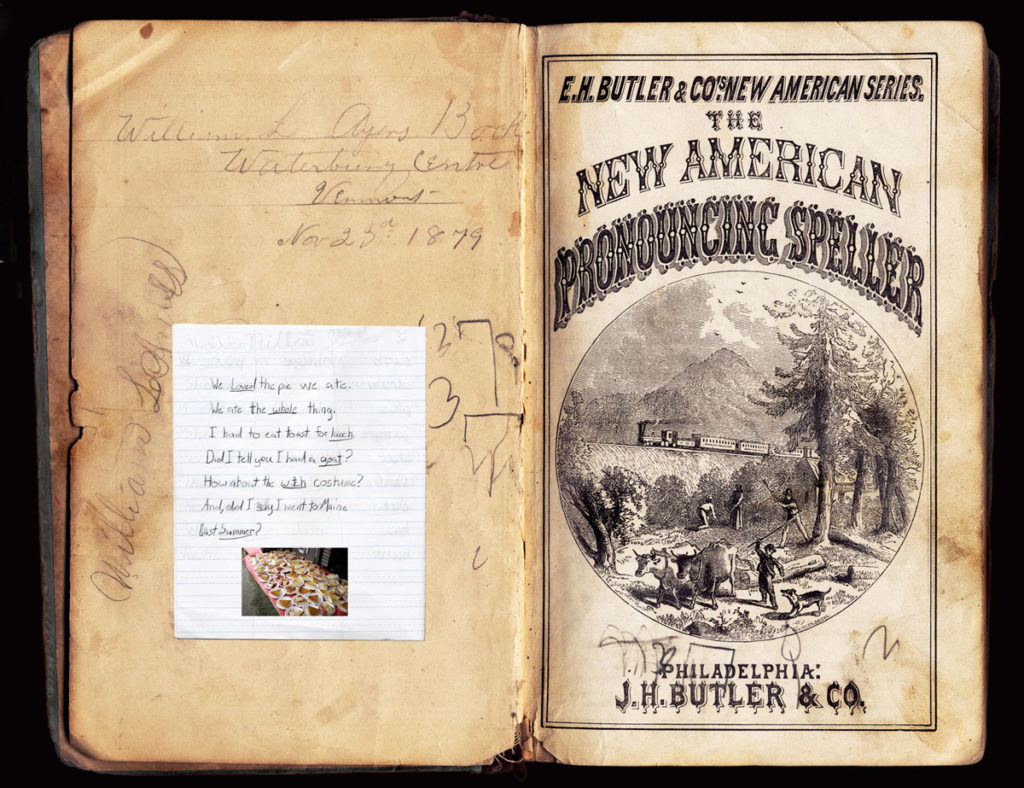 William L Ayers Book
Waterbury Centre
Vermont
Nov 23rd 1879
William
We Loved the pie we ate.
We ate the whole thing.
I had to eat toast for lunch
Did I tell you I had a goat?
How about the witch costume?
And, did I say I went to Maine
Last Summer?
2
3
8
E.H. BUTLER & CO'S. NEW AMERICAN SERIES.
THE
NEW AMERICAN
PRONOUNCING SPELLER
PHILADELPHIA:
J.H. BUTLER & CO.